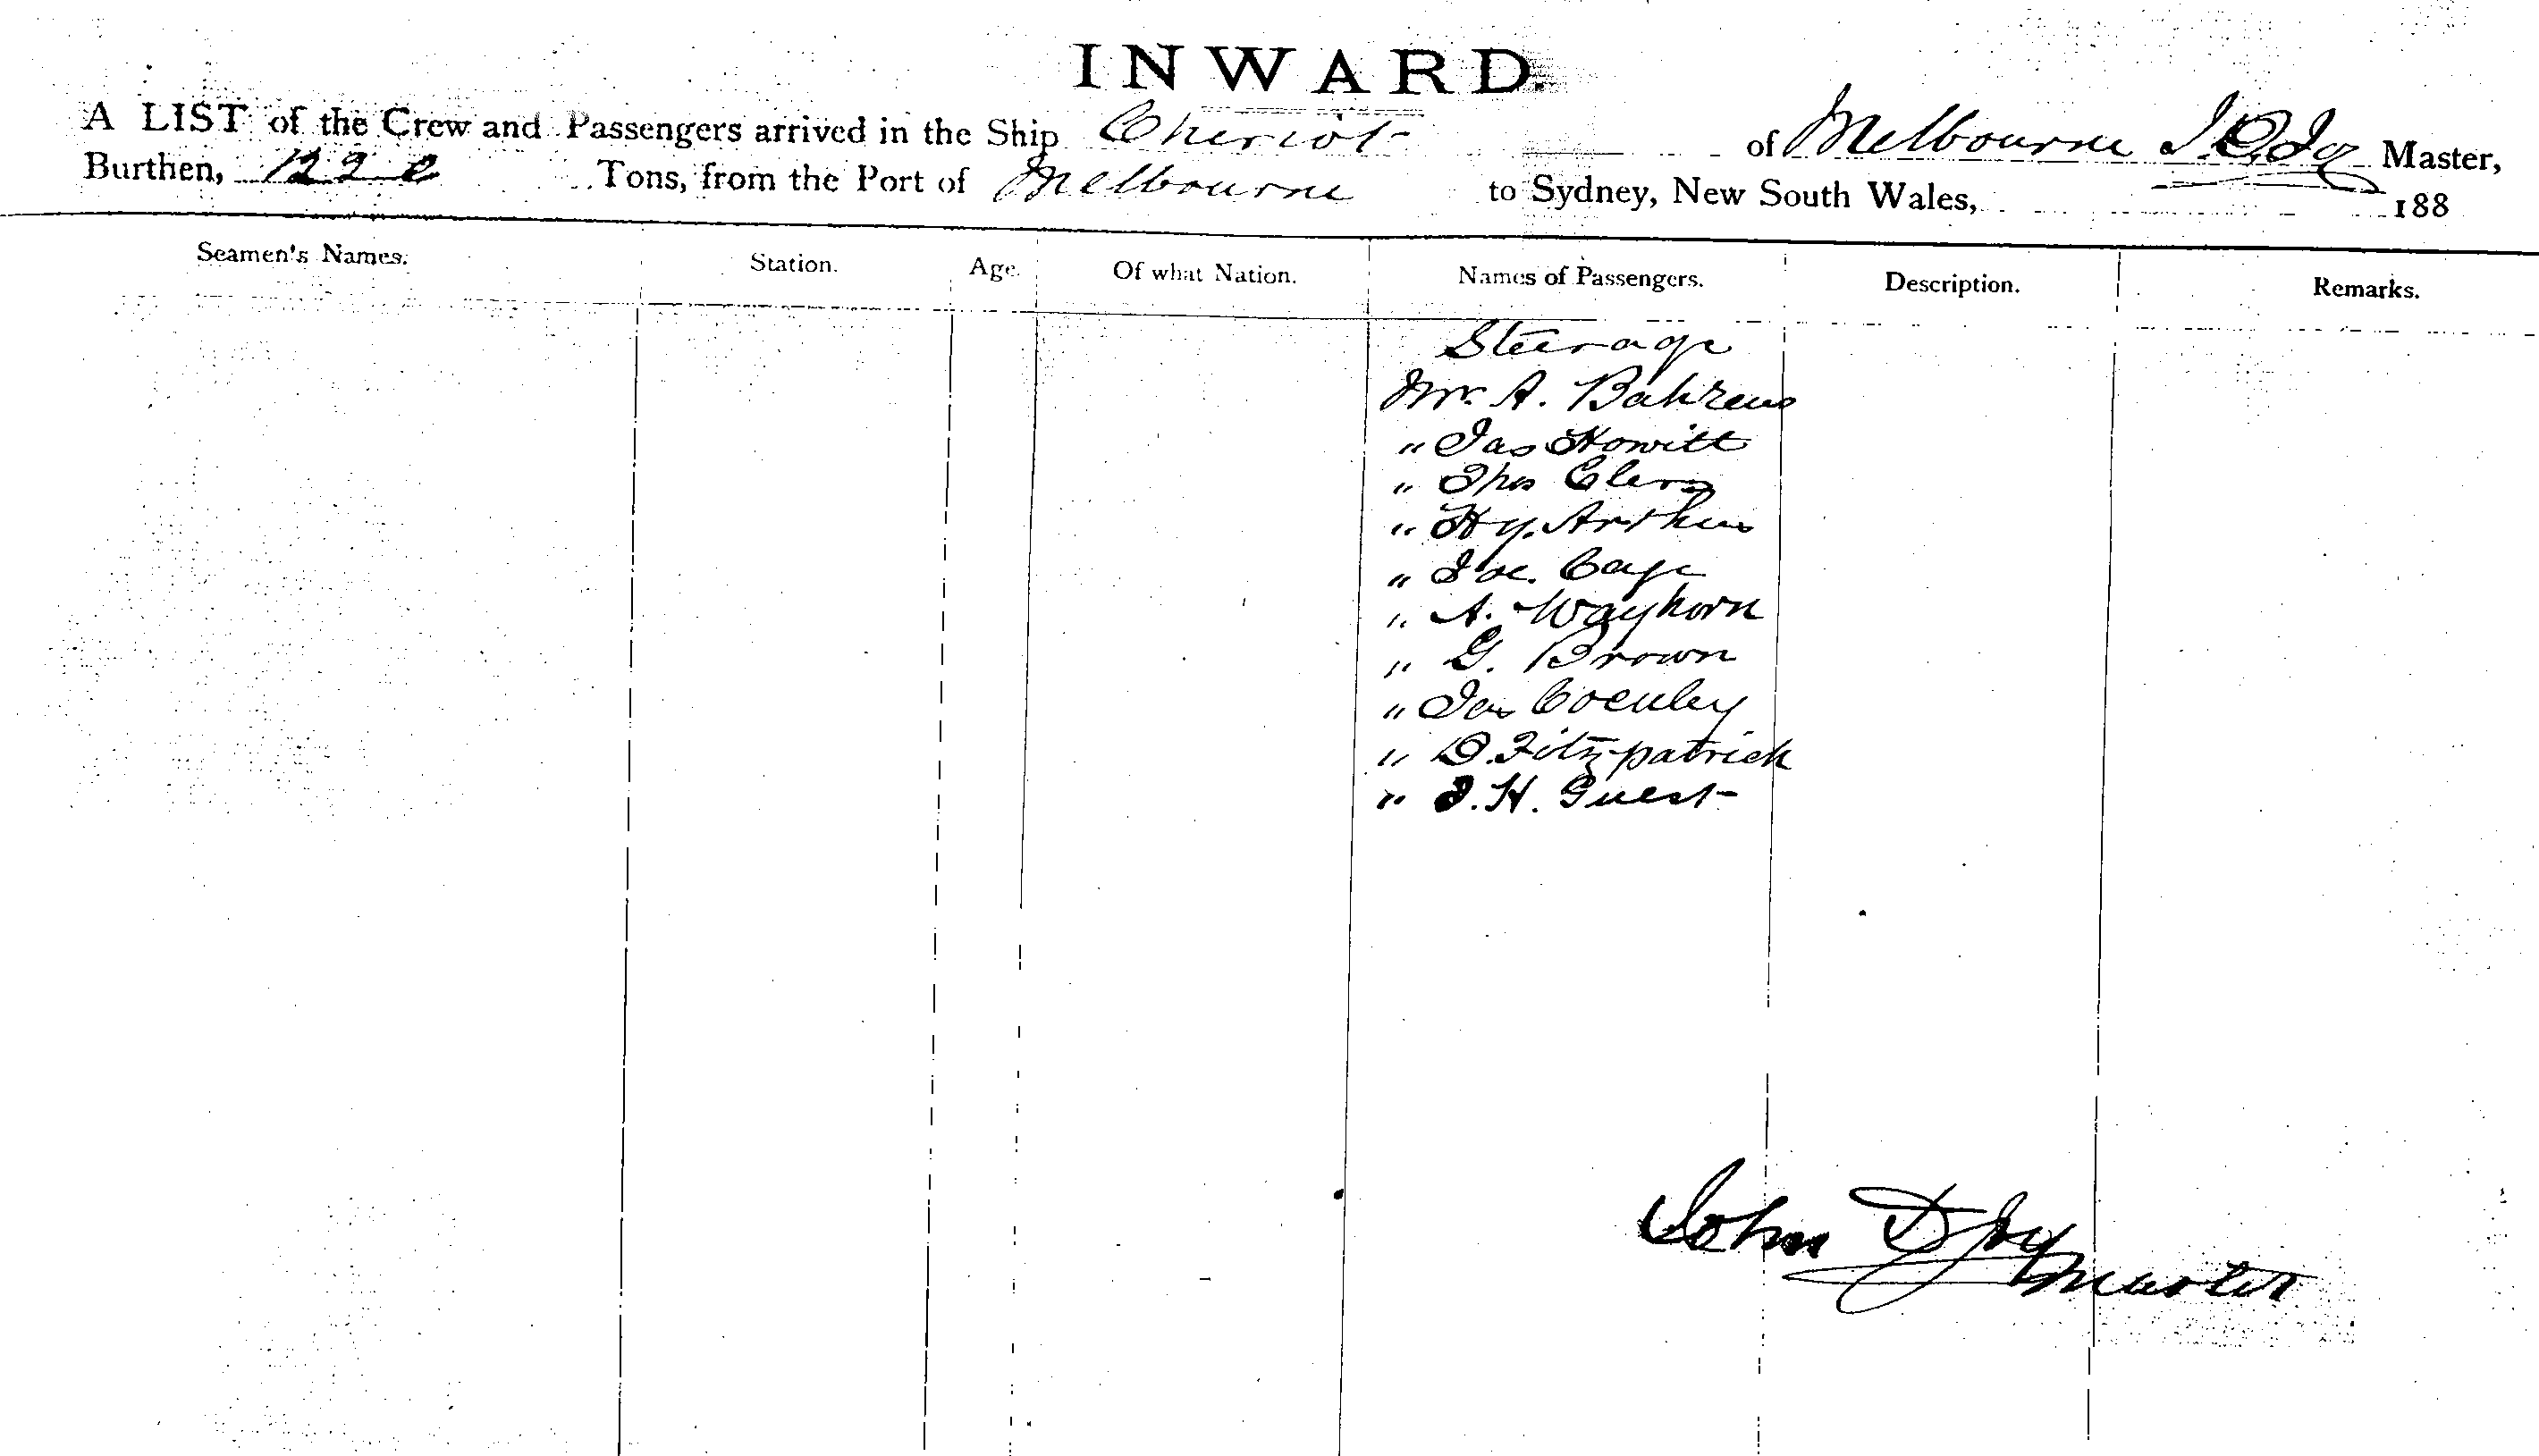 INWARD.
A LIST of the Crew and Passengers arrived in the Ship Cheviot of Melbourne J. D. Joy Master,
Burthen, 1220 Tons, from the Port of Melbourne to Sydney, New South Wales, 188
Seamen's Names. Station. Age. Of what Nation. Names of Passengers. Description. Remarks.
Steerage
Mr. A. Bahrens
" Jas Howitt
" Thos
" Hy. Arthur
" Joe. Cage
" A. Wayhorn
" G. Brown
" Jas
" D. Fitzpatrick
" J. H. Guest
John D Joy
Master